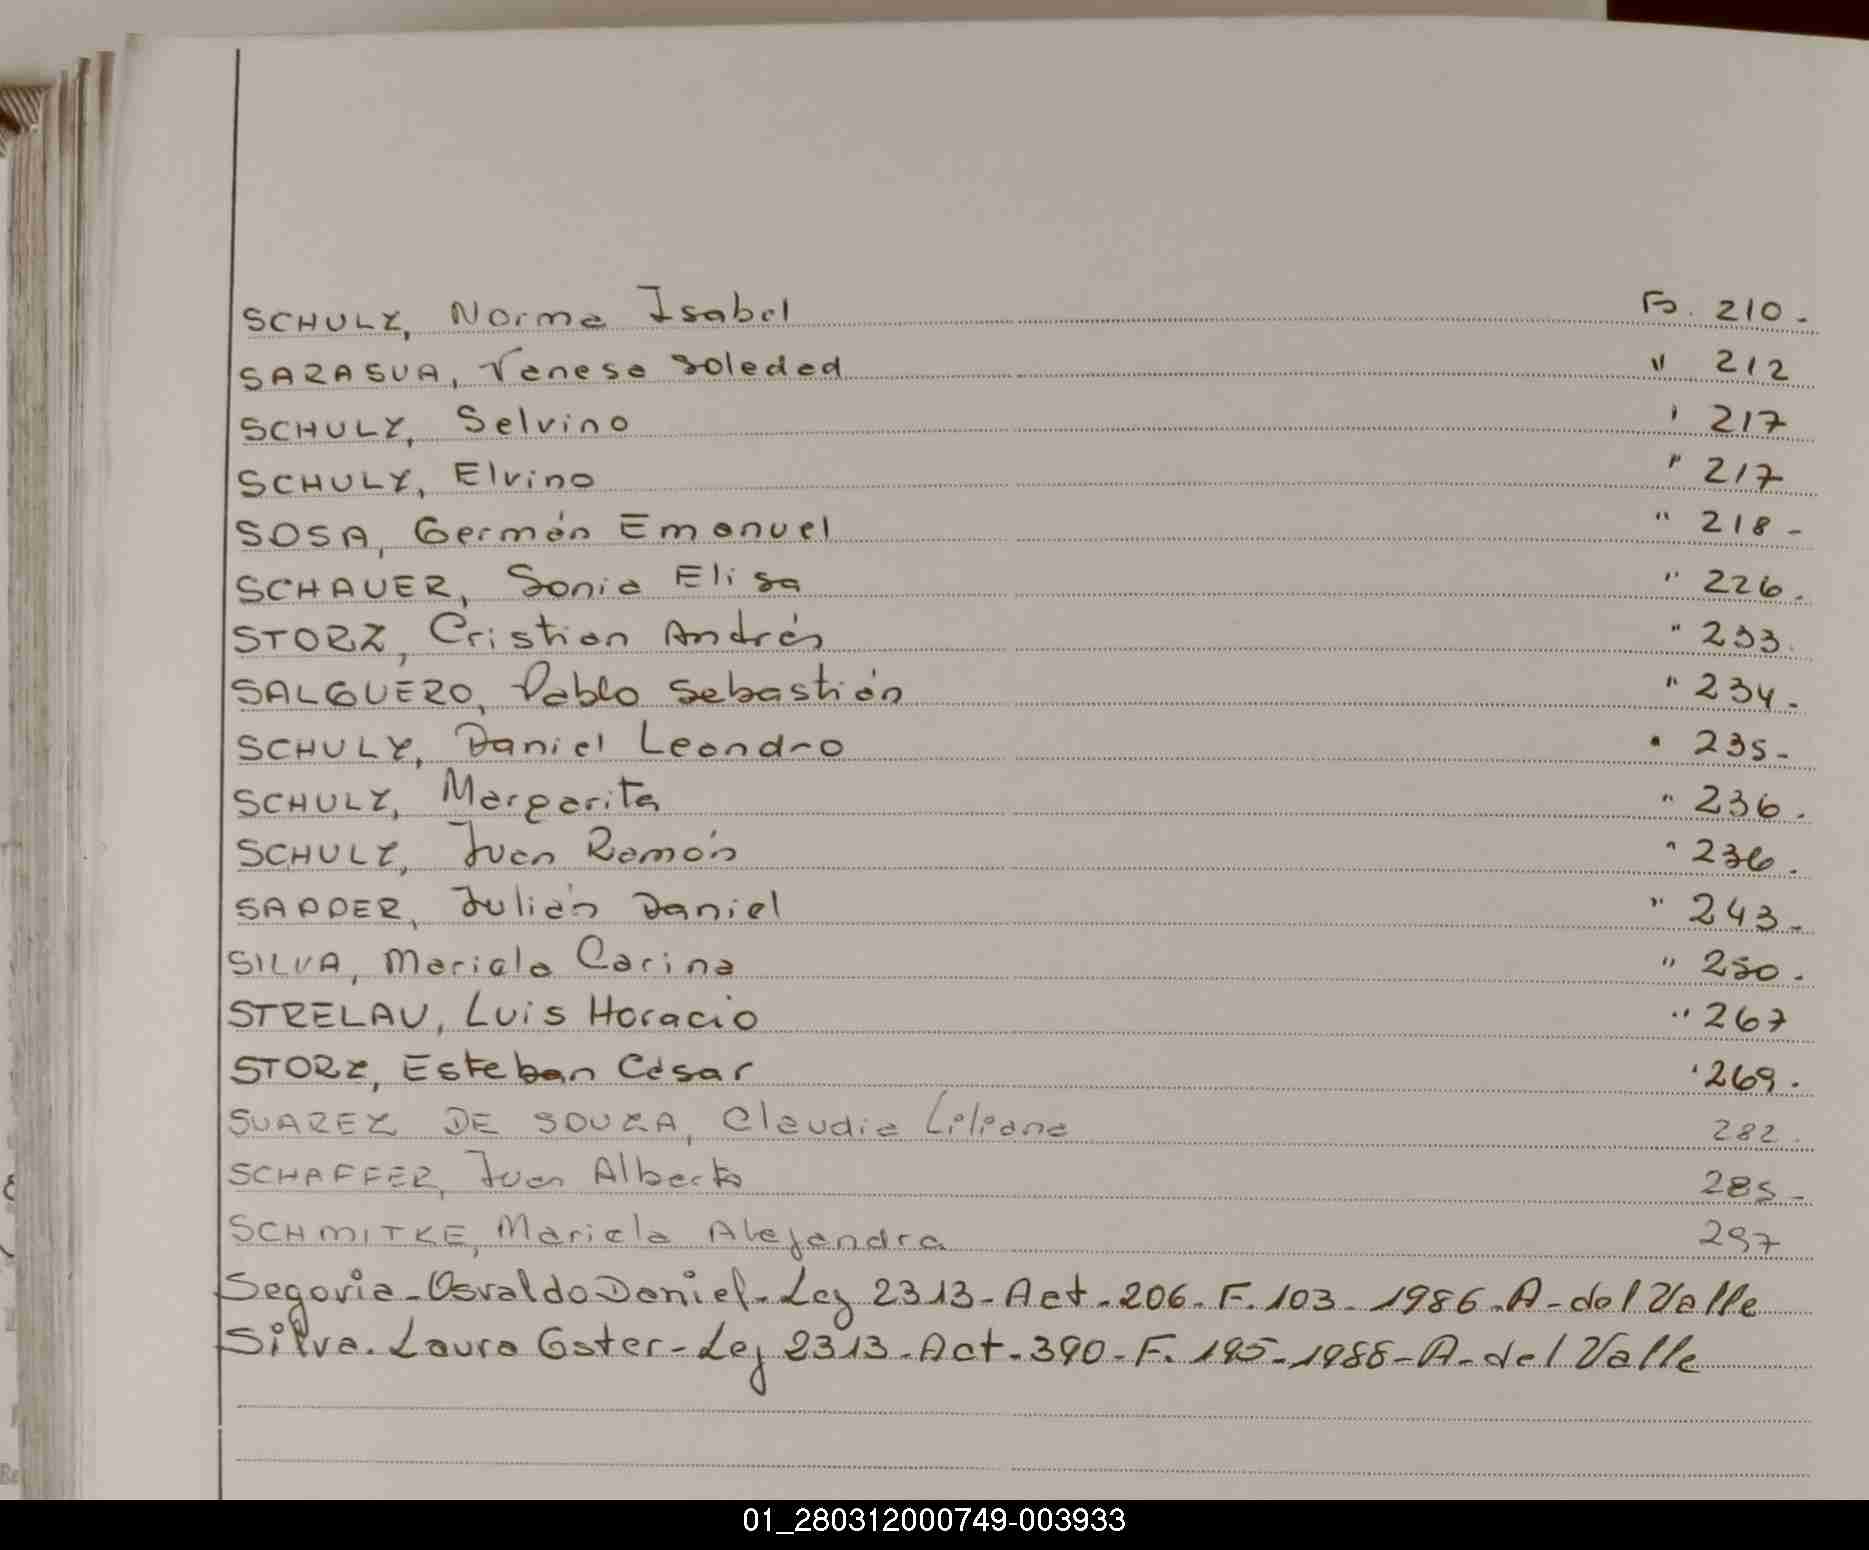 SCHULZ, Norma Isabel Fo. 210.
SARASUA, Vanesa Soledad " 212
SCHULZ, Selvino " 217
SCHULZ, Elvino " 217
SOSA, Germán Emanuel " 218-
SCHAUER, Sonia Elisa " 226.
STORZ, Cristian Andrés " 233.
SALGUERO, Pablo Sebastián " 234.
SCHULZ, Daniel Leandro " 235-
SCHULZ, Margarita " 236.
SCHULZ, Juan Ramón " 236.
SAPPER, Julián Daniel " 243-
SILVA, Mariela Carina " 250.
STRELAU, Luis Horacio " 267
STORZ, Esteban César " 269.
SUAREZ DE SOUZA, Claudia Liliana 282.
SCHAFFER, Juan Alberto 285-
SCHMITKE, Mariela Alejandra 297
Segovia-Osvaldo Daniel-Leg 2313-Act-206-F.103-1986-A-del Valle
Silva. Laura Ester-Leg 2313-Act-390-F. 195-1988-A-del Valle
01_280312000749-003933